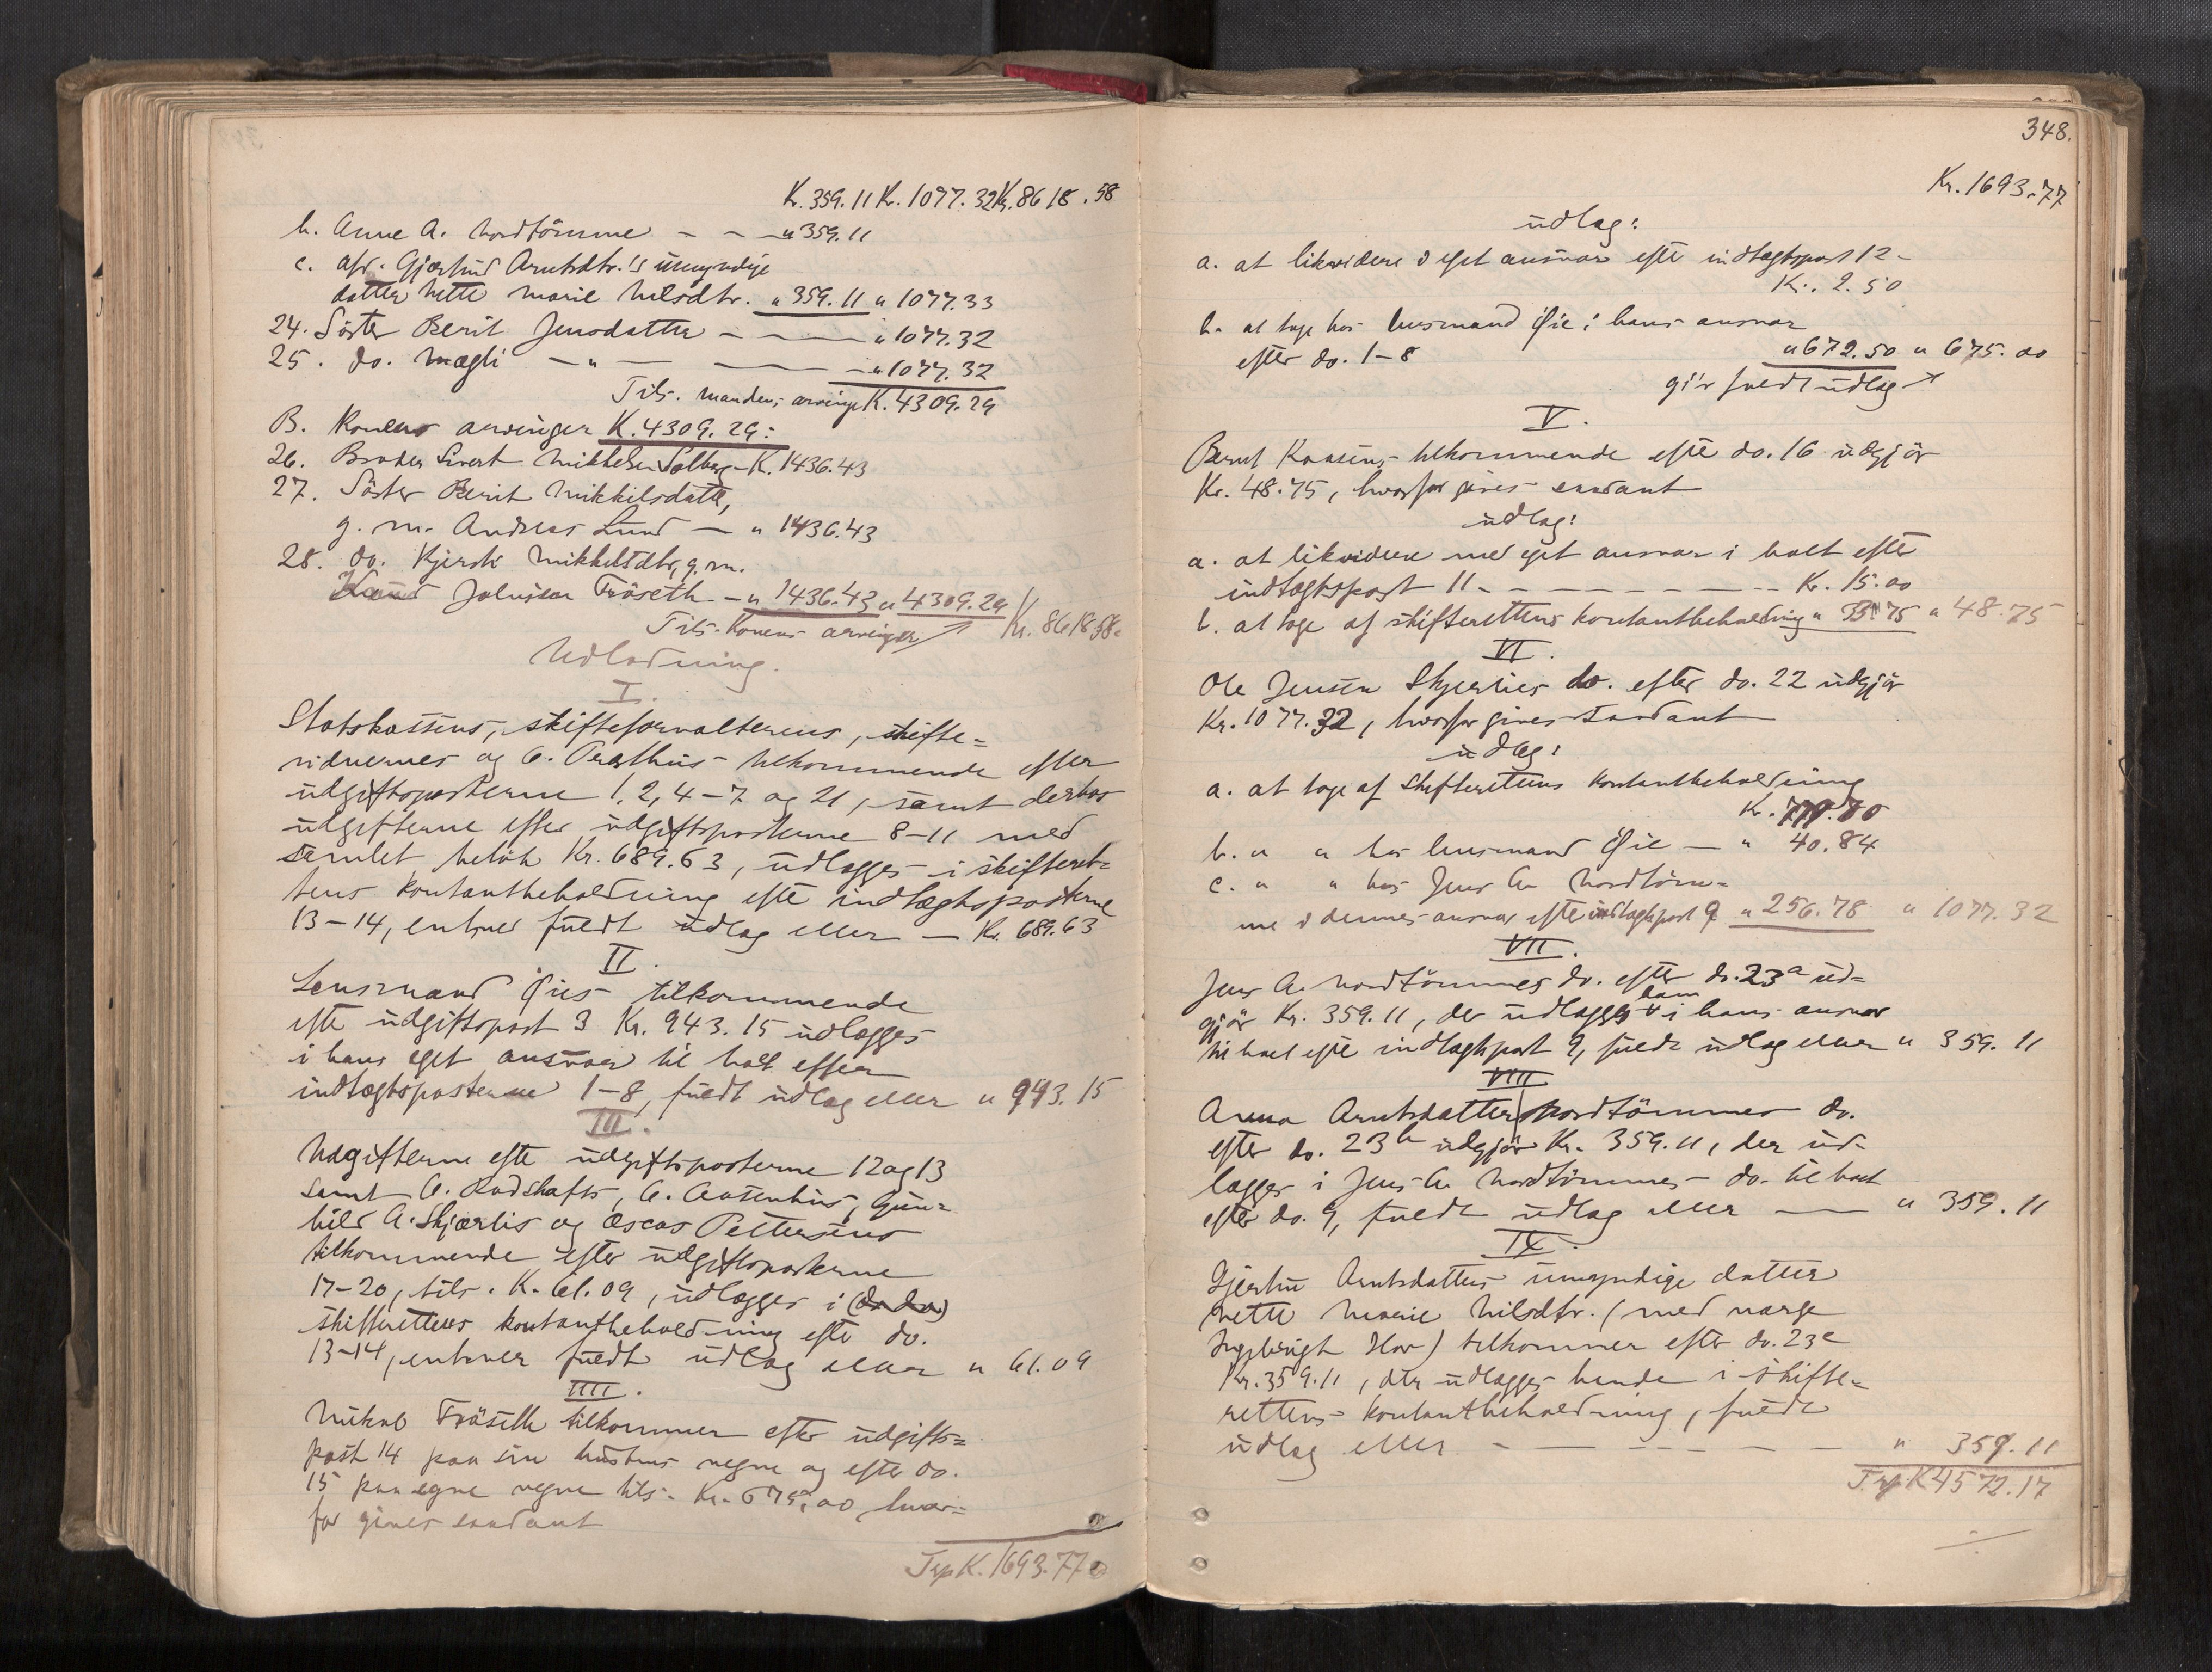 K. 359.11 Kr. 1077.32 Kr. 8618.58
b. Anne A. Nordtömme - - - " 359.11
c. afd. Gjertrud Arntsdtr.'s umyndige
datter Nette Marie Nilsdtr. " 359.11 " 1077.33
24. Söster Berit Jensdatter - - - " 1077.32
25. do. Magli - " - - - " 1077.32
Tils. mandens arvinger K. 4309.29
B. Konens arvinger K. 4309.29:
26. Broder Sivert Mikkelsen Solberg - K. 1436.43
27. Söster Berit Mikkelsdatter,
g. m. Andreas Lund — " 1436.43
28. do. Kjersti Mikkelsdtr, g. m.
Johnsen Fröseth - " 1436.43 " 4309.29
Tils. Konens arvinger Kr. 8618.58.
Udlodning.
I.
Statskassens, skifteforvalterens, skifte=
vidnernes og O. Præsthus tilkommende efter
udgiftsposterne 1, 2, 4-7 og 21, samt derhos
udgifterne efter udgiftsposterne 8-11 med
samlet belöb Kr. 689.63, udlægges i skifteret-
tens kontantbeholdning efter indtægtsposterne
13-14, enhver fuldt udlag eller — Kr. 689.63
II.
Lensmand Öies tilkommende
efter udgiftspost 3 Kr. 943.15 udlægges
i hans eget ansvar til halt efter
indtægtsposterne 1-8, fuldt udlag eller " 943.15
III.
Udgifterne efter udgiftsposterne 12 og 13
samt O. Rodskafts, O. Aasenhus, Gun=
hild A. Skjærlis og Oscar Pettersens
tilkommende efter udgiftsposterne
17-20, tils. K. 61.09, udlægges i (do do)
skifterettens kontantbeholdning efter do.
13-14, enhver fuldt udlag eller " 61.09
IIII.
Mikal Fröseth tilkommer efter udgifts=
post 14 paa sin hustrus vegne og efter do.
15 paa egne vegne tils. Kr. 675.00, hvor=
for gives saadant
Trp K. 1693.77
348.
Kr. 1693.77
udlag:
a. at likvidere i eget ansvar efter indtægtspost 12 -
Kr. 2.50
b. at tage hos lensmand Öie i hans ansvar
efter do. 1-8 " 672.50 " 675.00
gi'r fuldt udlag
V.
Bernt Kaasens tilkommende efter do. 16 udgjör
Kr. 48.75, hvorfor gives saadant
udlag:
a. at likvidere med eget ansvar i halt efter
indtægtspost 11 - - - - - - Kr. 15.00
b. at tage af skifterettens kontantbeholdning " 33.75 " 48.75
VI.
Ole Jensen Skjerlies do. efter do. 22 udgjör
Kr. 1077.32, hvorfor gives saadant
udlag:
a. at tage af skifterettens kontantbeholdning
Kr. 779.70
b. " " hos lensmand Öie — " 40.84
c. " " hos Jens A. Nordtöm=
me i dennes ansvar efter indtægtspost 9 " 256.78 " 1077.32
VII.
Jens A. Nordtömmes do. efter do. 23a ud=
gjör Kr. 359.11, der udlægges ham i hans ansvar
til halt efter indtægtspost 9, fuldt udlag eller " 359.11
VIII
Anna Arntsdatter Nordtömmes do.
efter do. 23b udgjör Kr. 359.11, der ud-
lægges i Jens A. Nordtömmes do. til halt
efter do. 9, fuldt udlag eller — " 359.11
IX.
Gjertru Arntsdatters umyndige datter
Nette Marie Nilsdtr. (med værge
Ingebrigt Hov) tilkommer efter do. 23c
Kr. 359.11, der udlægges hende i skifte=
rettens kontantbeholdning, fuldt
udlag eller - - - - - - " 359.11
Trp. K 4572.17